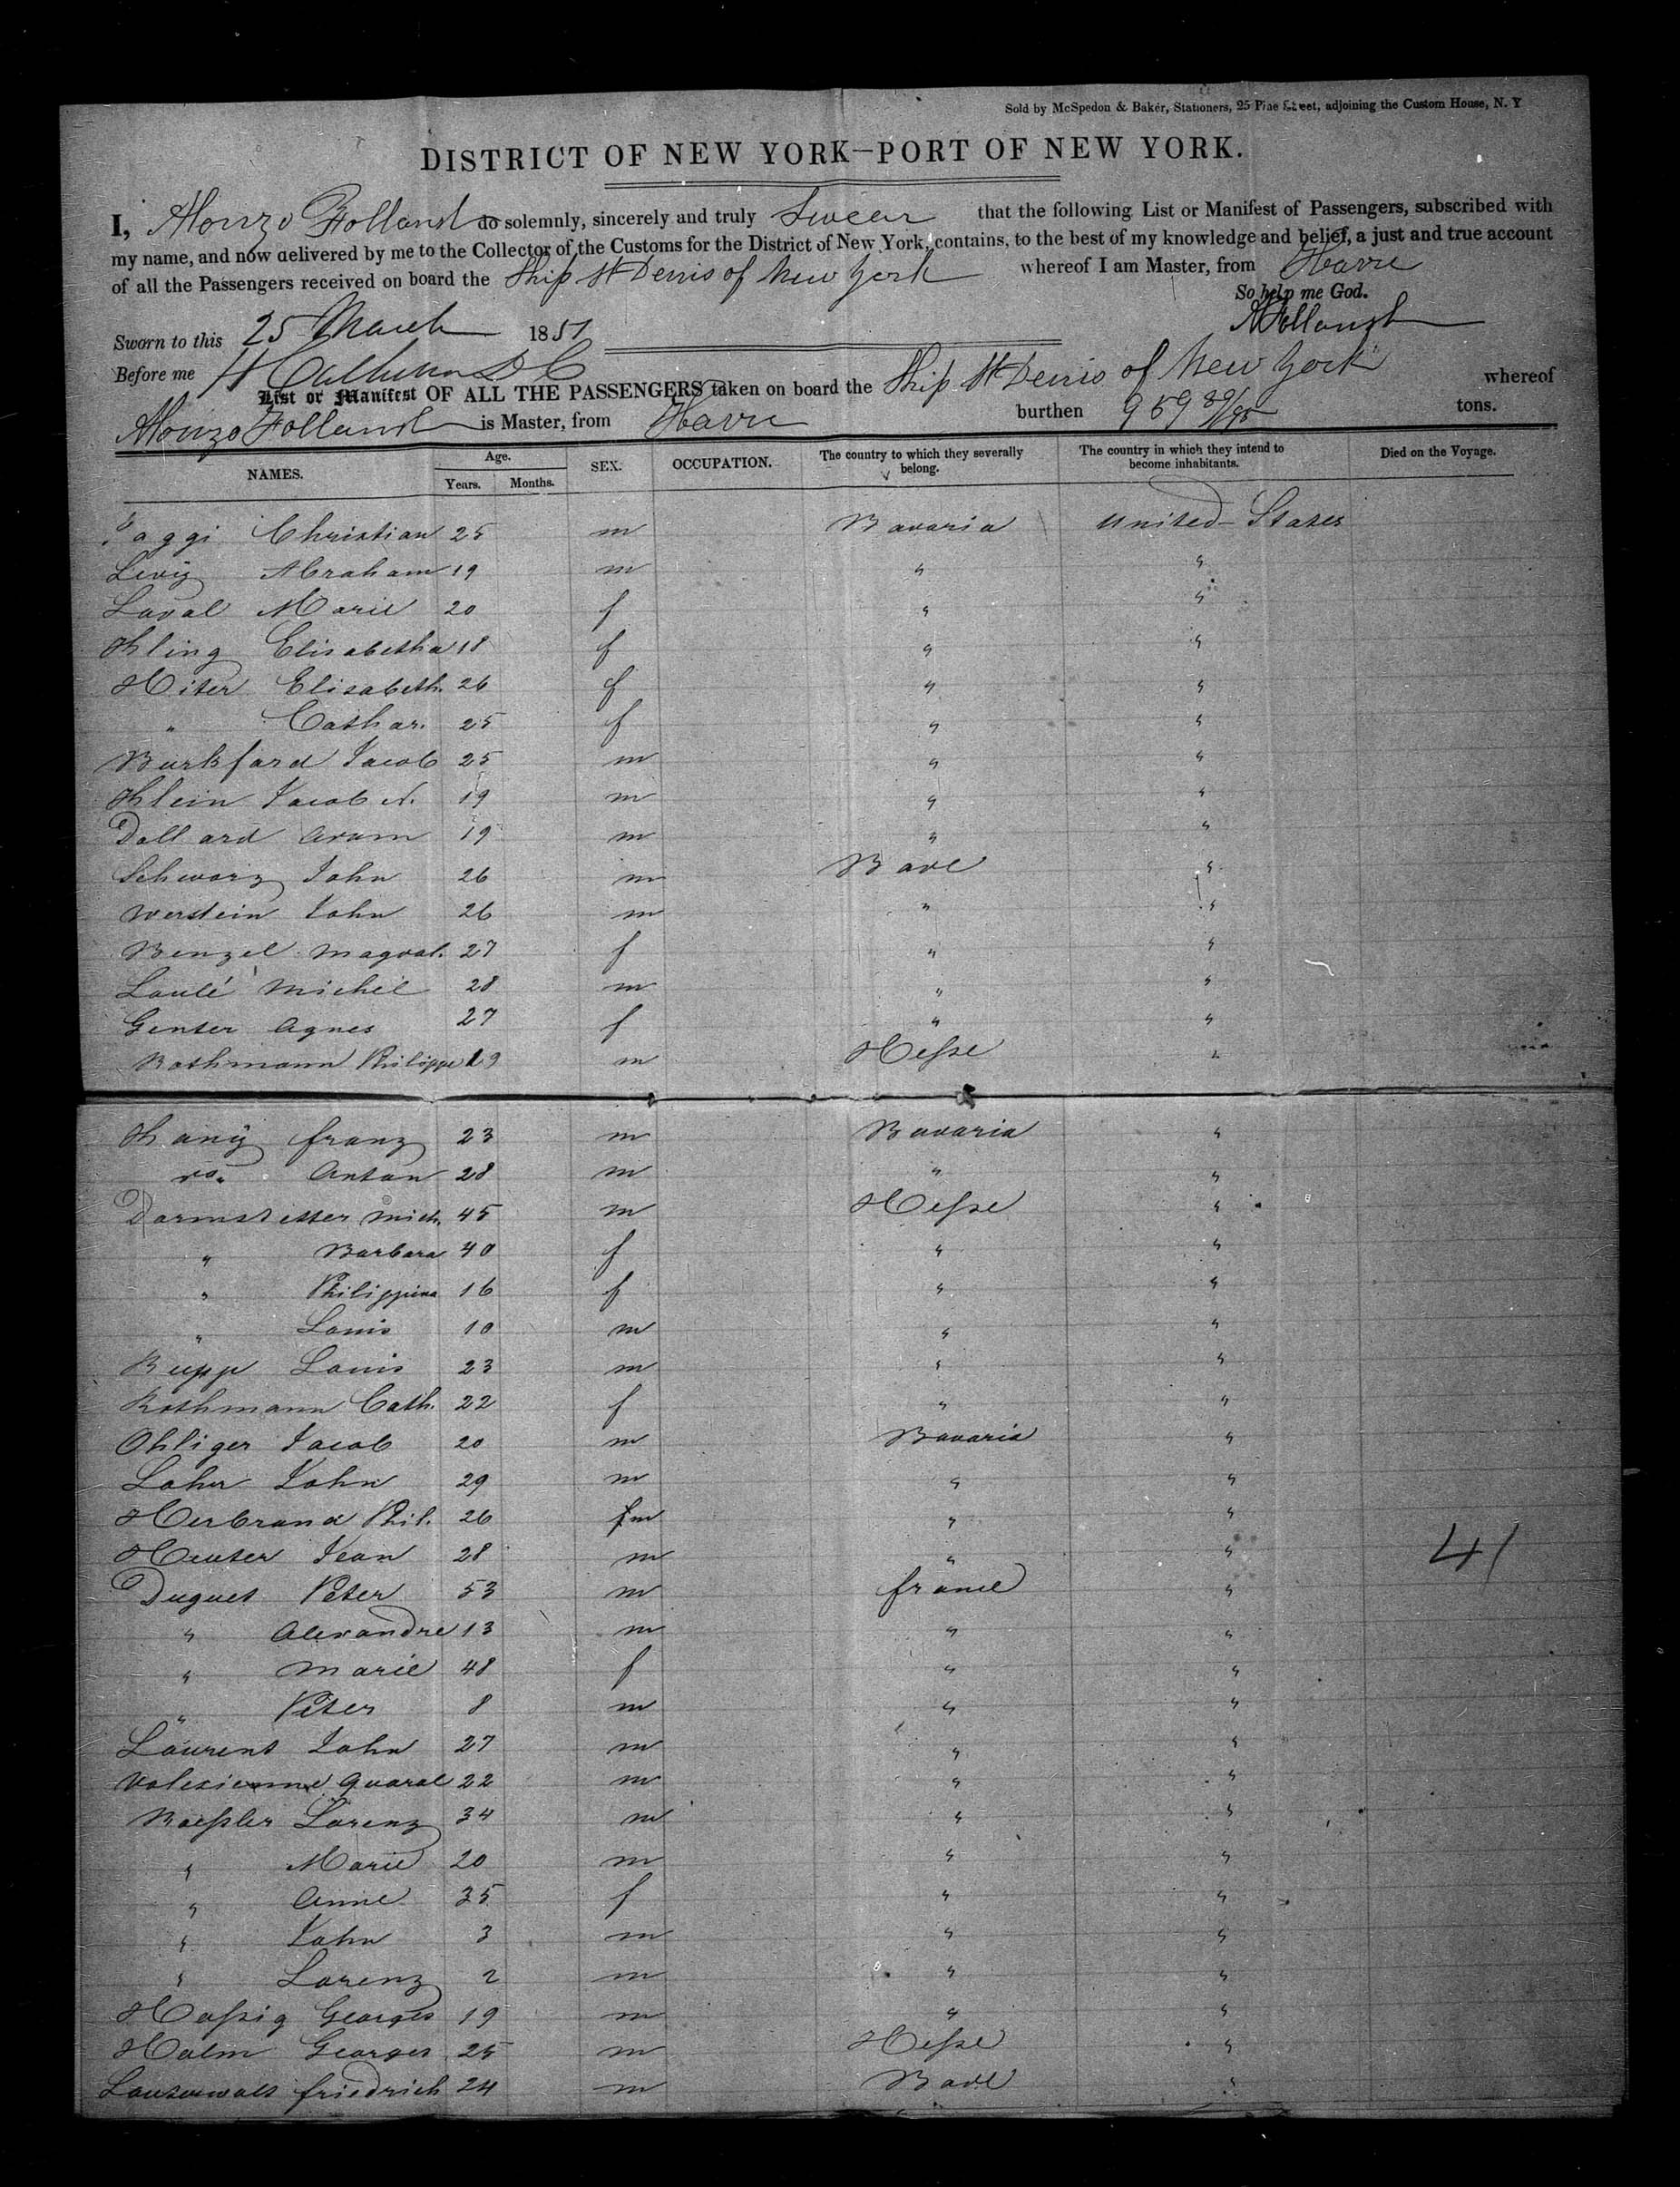 Sold by McSpedon & Baker, Stationers, 25 Pine Street, adjoining the Custom House, N. Y
DISTRICT OF NEW YORK—PORT OF NEW YORK.
I, Alonzo Follansl do solemnly, sincerely and truly Swear that the following List or Manifest of Passengers, subscribed with
my name, and now delivered by me to the Collector of the Customs for the District of New York, contains, to the best of my knowledge and belief, a just and true account
of all the Passengers received on board the Ship St Denis of New York whereof I am Master, from Havre
So help me God.
Sworn to this 25 March 1851 A Follansl
Before me H
List or Manifest OF ALL THE PASSENGERS taken on board the Ship St Denis of New York whereof
Alonzo Follansl is Master, from Havre burthen 959 89/95 tons.
NAMES. Age. Years. Months. SEX. OCCUPATION. The country to which they severally belong. The country in which they intend to become inhabitants. Died on the Voyage.
aggi Christian 25 m Bavaria United States
Levÿ Abraham 19 m " "
Laval Marie 20 f " "
Kling Elisabetha 18 f " "
Hiter Elisabeth. 26 f " "
" Cathar. 25 f " "
Burkhard Jacob 25 m " "
Klein Jacob A. 19 m " "
Dellard Avam 19 m " "
Schwarz John 26 m Bade "
Werstein John 26 m " "
Benzel Magdal. 27 f " "
Laulé Michel 28 m " "
Genter Agnes 27 f " "
Rothmann Philippe 29 m Hesse "
Hanÿ franz 23 m Bavaria "
do. Anton 28 m " "
Darmstetter Mich. 45 m Hesse "
" Barbara 40 f " "
" Philippina 16 f " "
" Louis 10 m " "
Rupp Louis 23 m " "
Rothmann Cath. 22 f " "
Ohliger Jacob 20 m Bavaria "
Loher John 29 m " "
Herbrand Phil. 26 m " "
Heuter Jean 28 m " " 41
Duguet Peter 53 m france "
" Alexandre 13 m " "
" Marie 48 f " "
" Peter 8 m " "
Laurent John 27 m " "
22 m " "
Baessler Lorenz 34 m " "
" Marie 20 m " "
" Anne 35 f " "
" John 3 m " "
" Lorenz 2 m " "
Hassig Georges 19 m " "
Halm Georges 25 m Hesse "
Lautenwalt friedrich 24 m Bade "